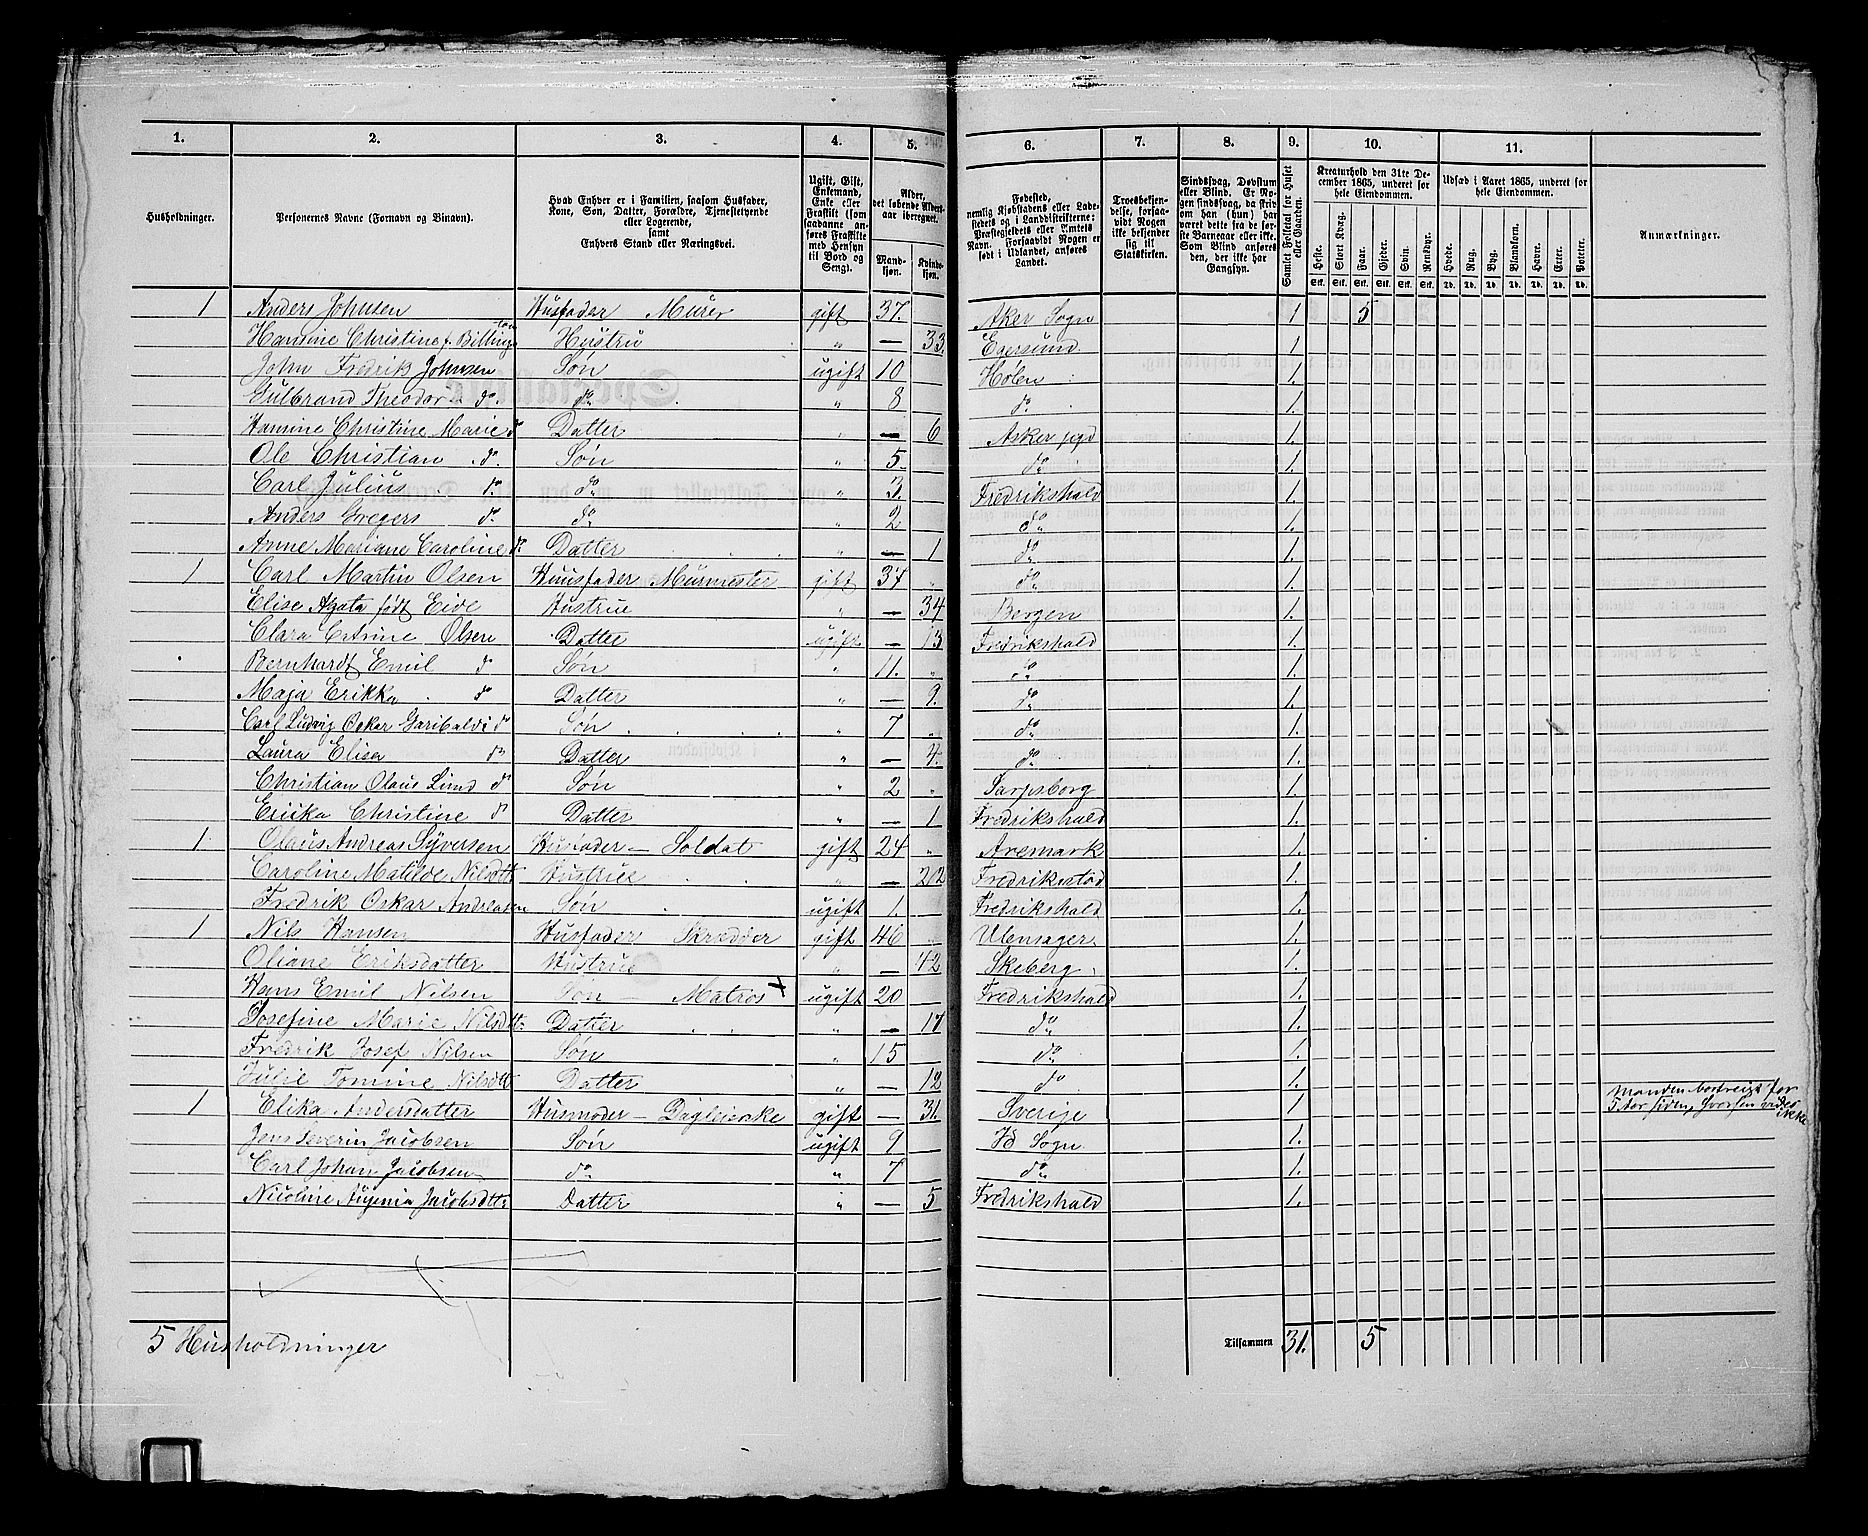 1. 2. 3. 4. 5. 6. 7. 8. 9. 10. 11.
Husholdninger.
Personernes Navne (Fornavn og Binavn).
Hvad Enhver er i Familien, saasom Husfader,
Kone, Søn, Datter, Forældre, Tjenestetyende
eller Logerende,
samt
Enhvers Stand eller Næringsvei.
Ugift, Gift,
Enkemand,
Enke eller
Fraskilt (som
saadanne an-
føres Fraskilte
med Hensyn
til Bord og
Seng).
Alder,
det løbende Alders-
aar iberegnet.
Mand-
kjøn.
Kvinde-
kjøn.
Fødested,
nemlig Kjøbstadens eller Lade-
stedets og i Landdistrikterne:
Præstegjeldets eller Amtets
Navn. Forsaavidt Nogen er
født i Udlandet, anføres
Landet.
Troesbekjen-
delse, forsaa-
vidt Nogen
ikke bekjender
sig til
Statskirken.
Sindssvag, Døvstum
eller Blind. Er No-
gen sindssvag, da skriv
om han (hun) har
været dette før det før-
ste Barneaar eller ikke.
Som Blind anføres
den, der ikke har
Gangsyn.
Samlet Folketal for Huset
eller Gaarden.
Kreaturhold den 31te De-
cember 1865, underet for
hele Eiendommen.
Heste. Stort Kvæg. Faar. Gjeder. Svin. Rensdyr.
Stk. Stk. Stk. Stk. Stk. Stk.
Udsæd i Aaret 1865, underet for
hele Eiendommen.
Hvede. Rug. Byg. Blandkorn. Havre. Erter. Poteter.
Td. Td. Td. Td. Td. Td. Td.
Anmærkninger.
1 Anders Johnsen Husfader Murer gift 37. Aker Sogn 1 5
Hansine Christine f. Billing Hustru " — 33. Egersund 1
John Fredrik Johnsen Søn ugift 10 Hølen 1.
Gulbrand Theodor do. do " 8 do 1.
Hansine Christine Marie do Datter " — 6 Asker pgd 1.
Ole Christian do. Søn " 5. do 1.
Carl Julius do. do " 3. Fredrikshald 1.
Anders Gregers do. do " 2 do 1.
Anne Mariane Caroline do Datter " — 1 do 1.
1 Carl Martin Olsen Huusfader Murmester gift 37 " do 1.
Elise Agata født Eide Hustrue " — 34 Bergen 1.
Clara Catrine Olsen Datter ugift — 13 Fredrikshald 1.
Bernhardt Emil do Søn " 11. " do 1.
Maja Erikka do Datter " — 9. do 1.
Carl Ludvig Oskar Garibaldi do Søn " 7 " do 1.
Laura Elisa do Datter " — 4. do 1.
Christian Olaus Lund do Søn " 2 " Sarpsborg 1.
Ericka Christine do Datter " — 1 Fredrikshald 1.
1 Olaus Andreas Syversen Husfader — Soldat gift 24 " Aremark 1.
Caroline Matilde Nilsdtt: Hustrue " — 22 Fredrikstad 1.
Fredrik Oskar Andreasen Søn ugift 1. Fredrikshald 1.
1 Nils Hansen Husfader Skrædder gift 46 " Ulensager 1.
Oliane Eriksdatter Hustrue " — 42 Skeberg 1.
Hans Emil Nilsen Søn — Matros + ugift 20 Fredrikshald 1.
Josefine Marie Nilsdtt: Datter " — 17 do 1.
Fredrik Josef Nilsen Søn " 15 do 1.
Julie Tomine Nilsdtt Datter " — 12 do 1.
1 Elika Andersdatter Husmoder — Dagleierske gift — 31. Sverije 1 Manden bortreist for
5 Aar siden, hvorhen vides
ikke
Jens Severin Jacobsen Søn ugift 9 Id Sogn 1.
Carl Johan Jacobsen do " 7 do 1.
Nicoline Augenia Jacobsdtt: Datter " — 5 Fredrikshald 1.
5 Husholdninger
Tilsammen 31. 5